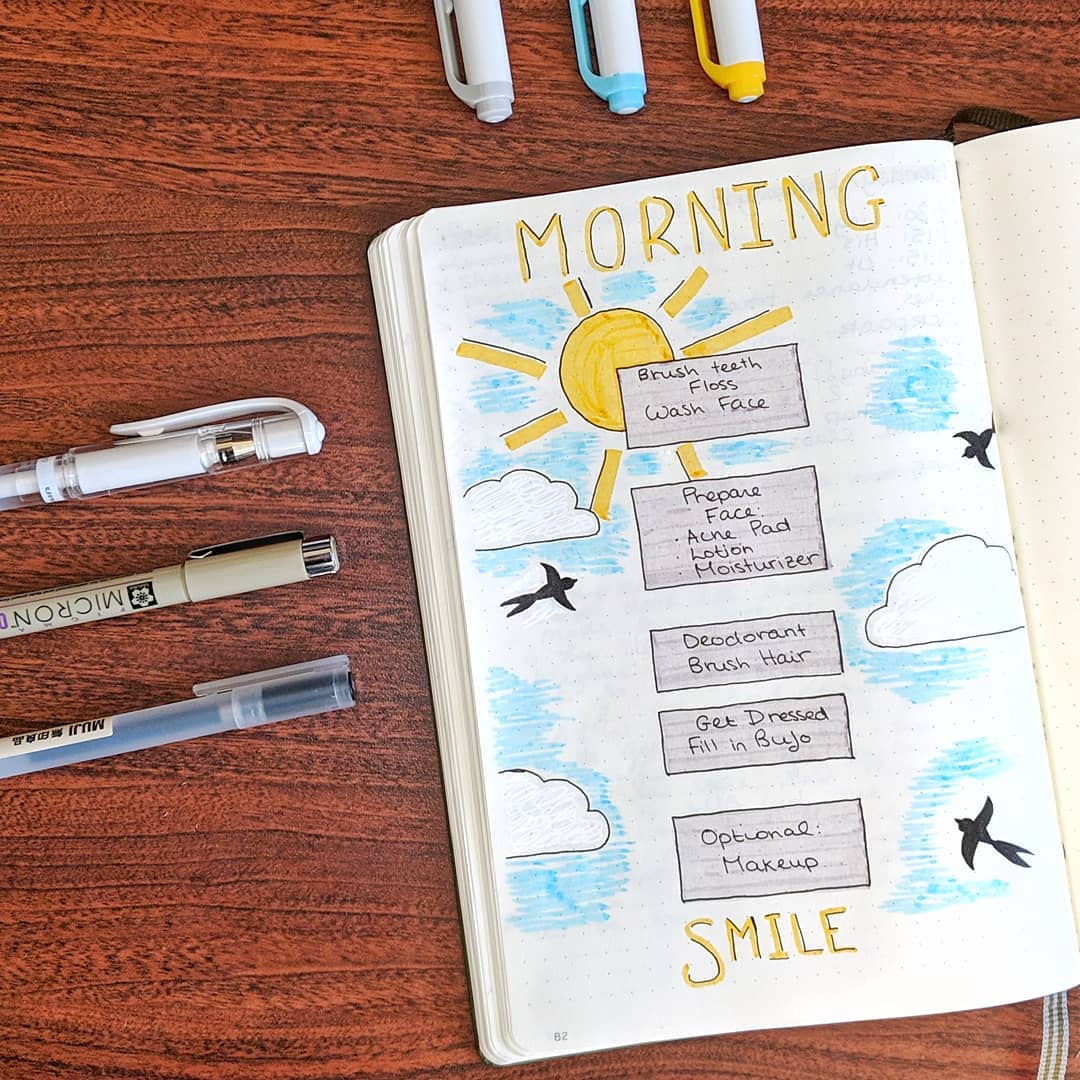 MORNING
Brush teeth
Floss
Wash Face
Prepare
Face:
· Acne Pad
· Lotion
· Moisturizer
Deodorant
Brush Hair
Get Dressed
Fill in BuJo
Optional:
Makeup
SMILE
82
MICRON
MUJI 無印良品